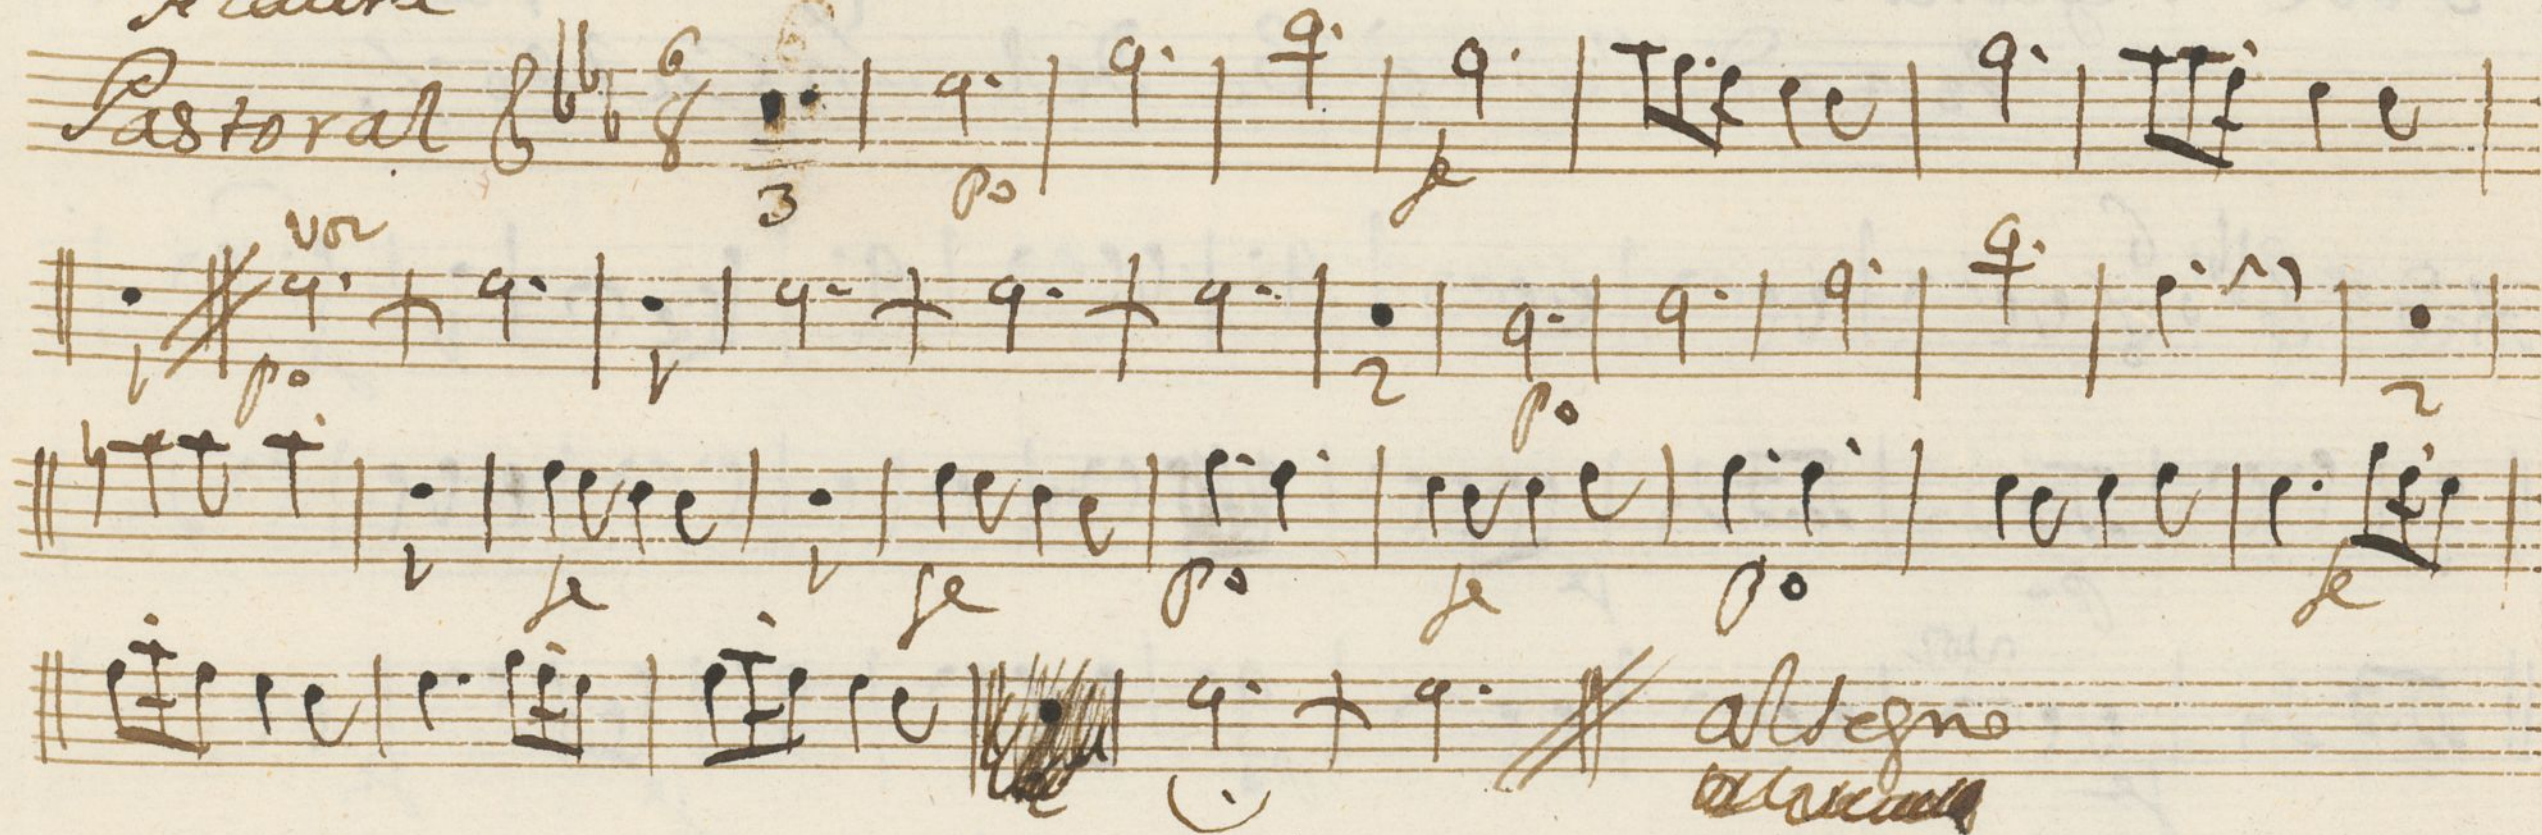 Pastoral 6 8
3 po fe
voz
1 po 1 2 po 2
1 fe 1 fe po fe po fe
al segno